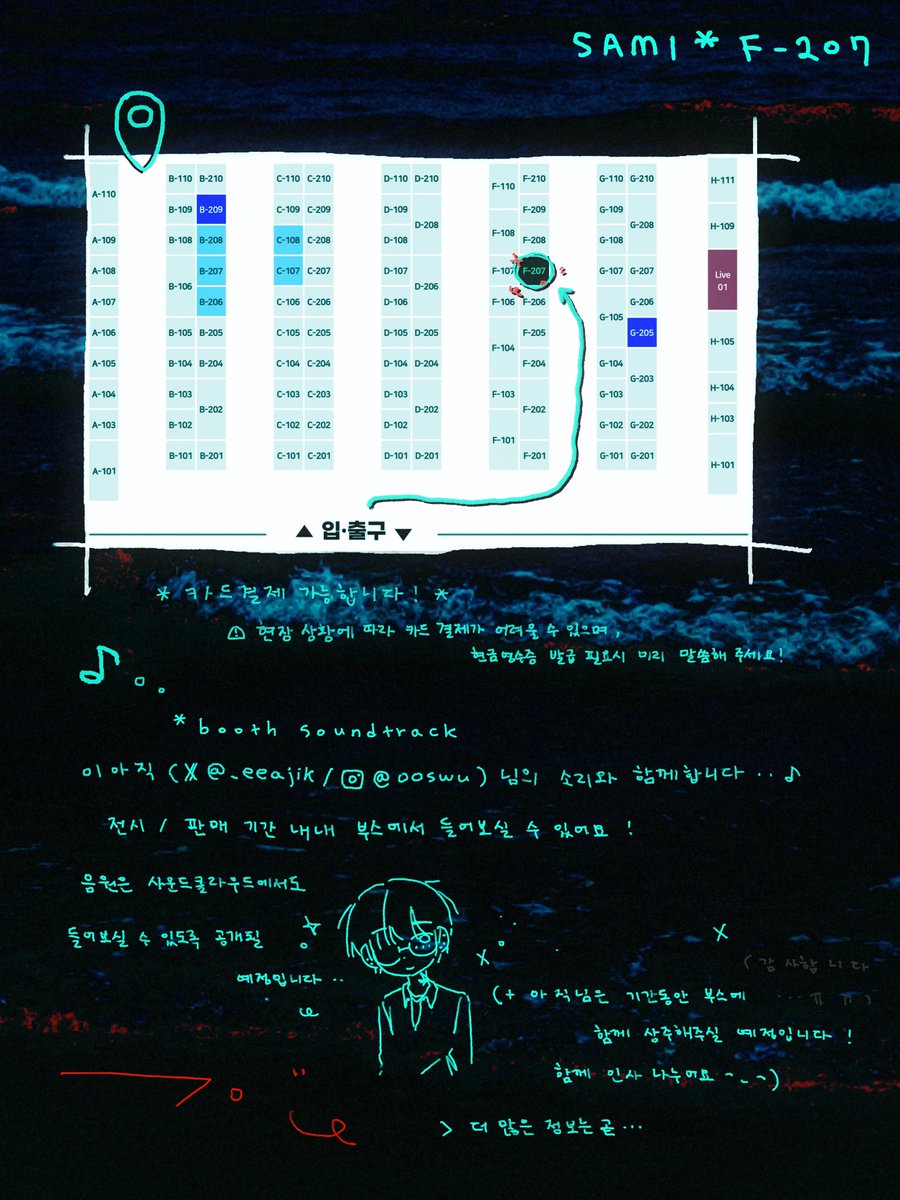 SAMI * F-207
A-110
A-109
A-108
A-107
A-106
A-105
A-104
A-103
A-101
B-110 B-210
B-109 B-209
B-108 B-208
B-207
B-106
B-206
B-105 B-205
B-104 B-204
B-103
B-202
B-102
B-101 B-201
C-110 C-210
C-109 C-209
C-108 C-208
C-107 C-207
C-106 C-206
C-105 C-205
C-104 C-204
C-103 C-203
C-102 C-202
C-101 C-201
D-110 D-210
D-109
D-208
D-108
D-107
D-206
D-106
D-105 D-205
D-104 D-204
D-103
D-202
D-102
D-101 D-201
F-110
F-210
F-209
F-108
F-208
F-107 F-207
F-106 F-206
F-205
F-104
F-204
F-103
F-202
F-101
F-201
G-110 G-210
G-109
G-208
G-108
G-107 G-207
G-206
G-105
G-205
G-104
G-203
G-103
G-102 G-202
G-101 G-201
H-111
H-109
Live
01
H-105
H-104
H-103
H-101
▲ 입·출구 ▼
* 카드결제 가능합니다! *
⚠ 현장 상황에 따라 카드 결제가 어려울 수 있으며,
현금영수증 발급 필요시 미리 말씀해 주세요!
* booth soundtrack
이아직 (X @_eeajik / @ooswu) 님의 소리와 함께합니다‥♪
전시 / 판매 기간 내내 부스에서 들어보실 수 있어요 !
음원은 사운드클라우드에서도
들어보실 수 있도록 공개될
예정입니다‥
(감사합니다
…ㅠㅠ)
(+ 아직님은 기간동안 부스에
함께 상주해주실 예정입니다 !
함께 인사 나누어요 ~_~)
> 더 많은 정보는 곧…